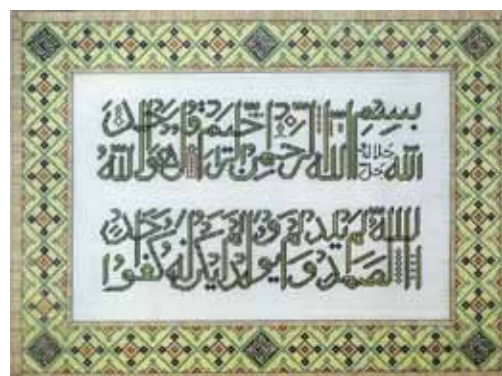 بسم الله الرحمن الرحيم قل هو الله احد
الله الصمد لم يلد ولم يولد ولم يكن له كفوا احد